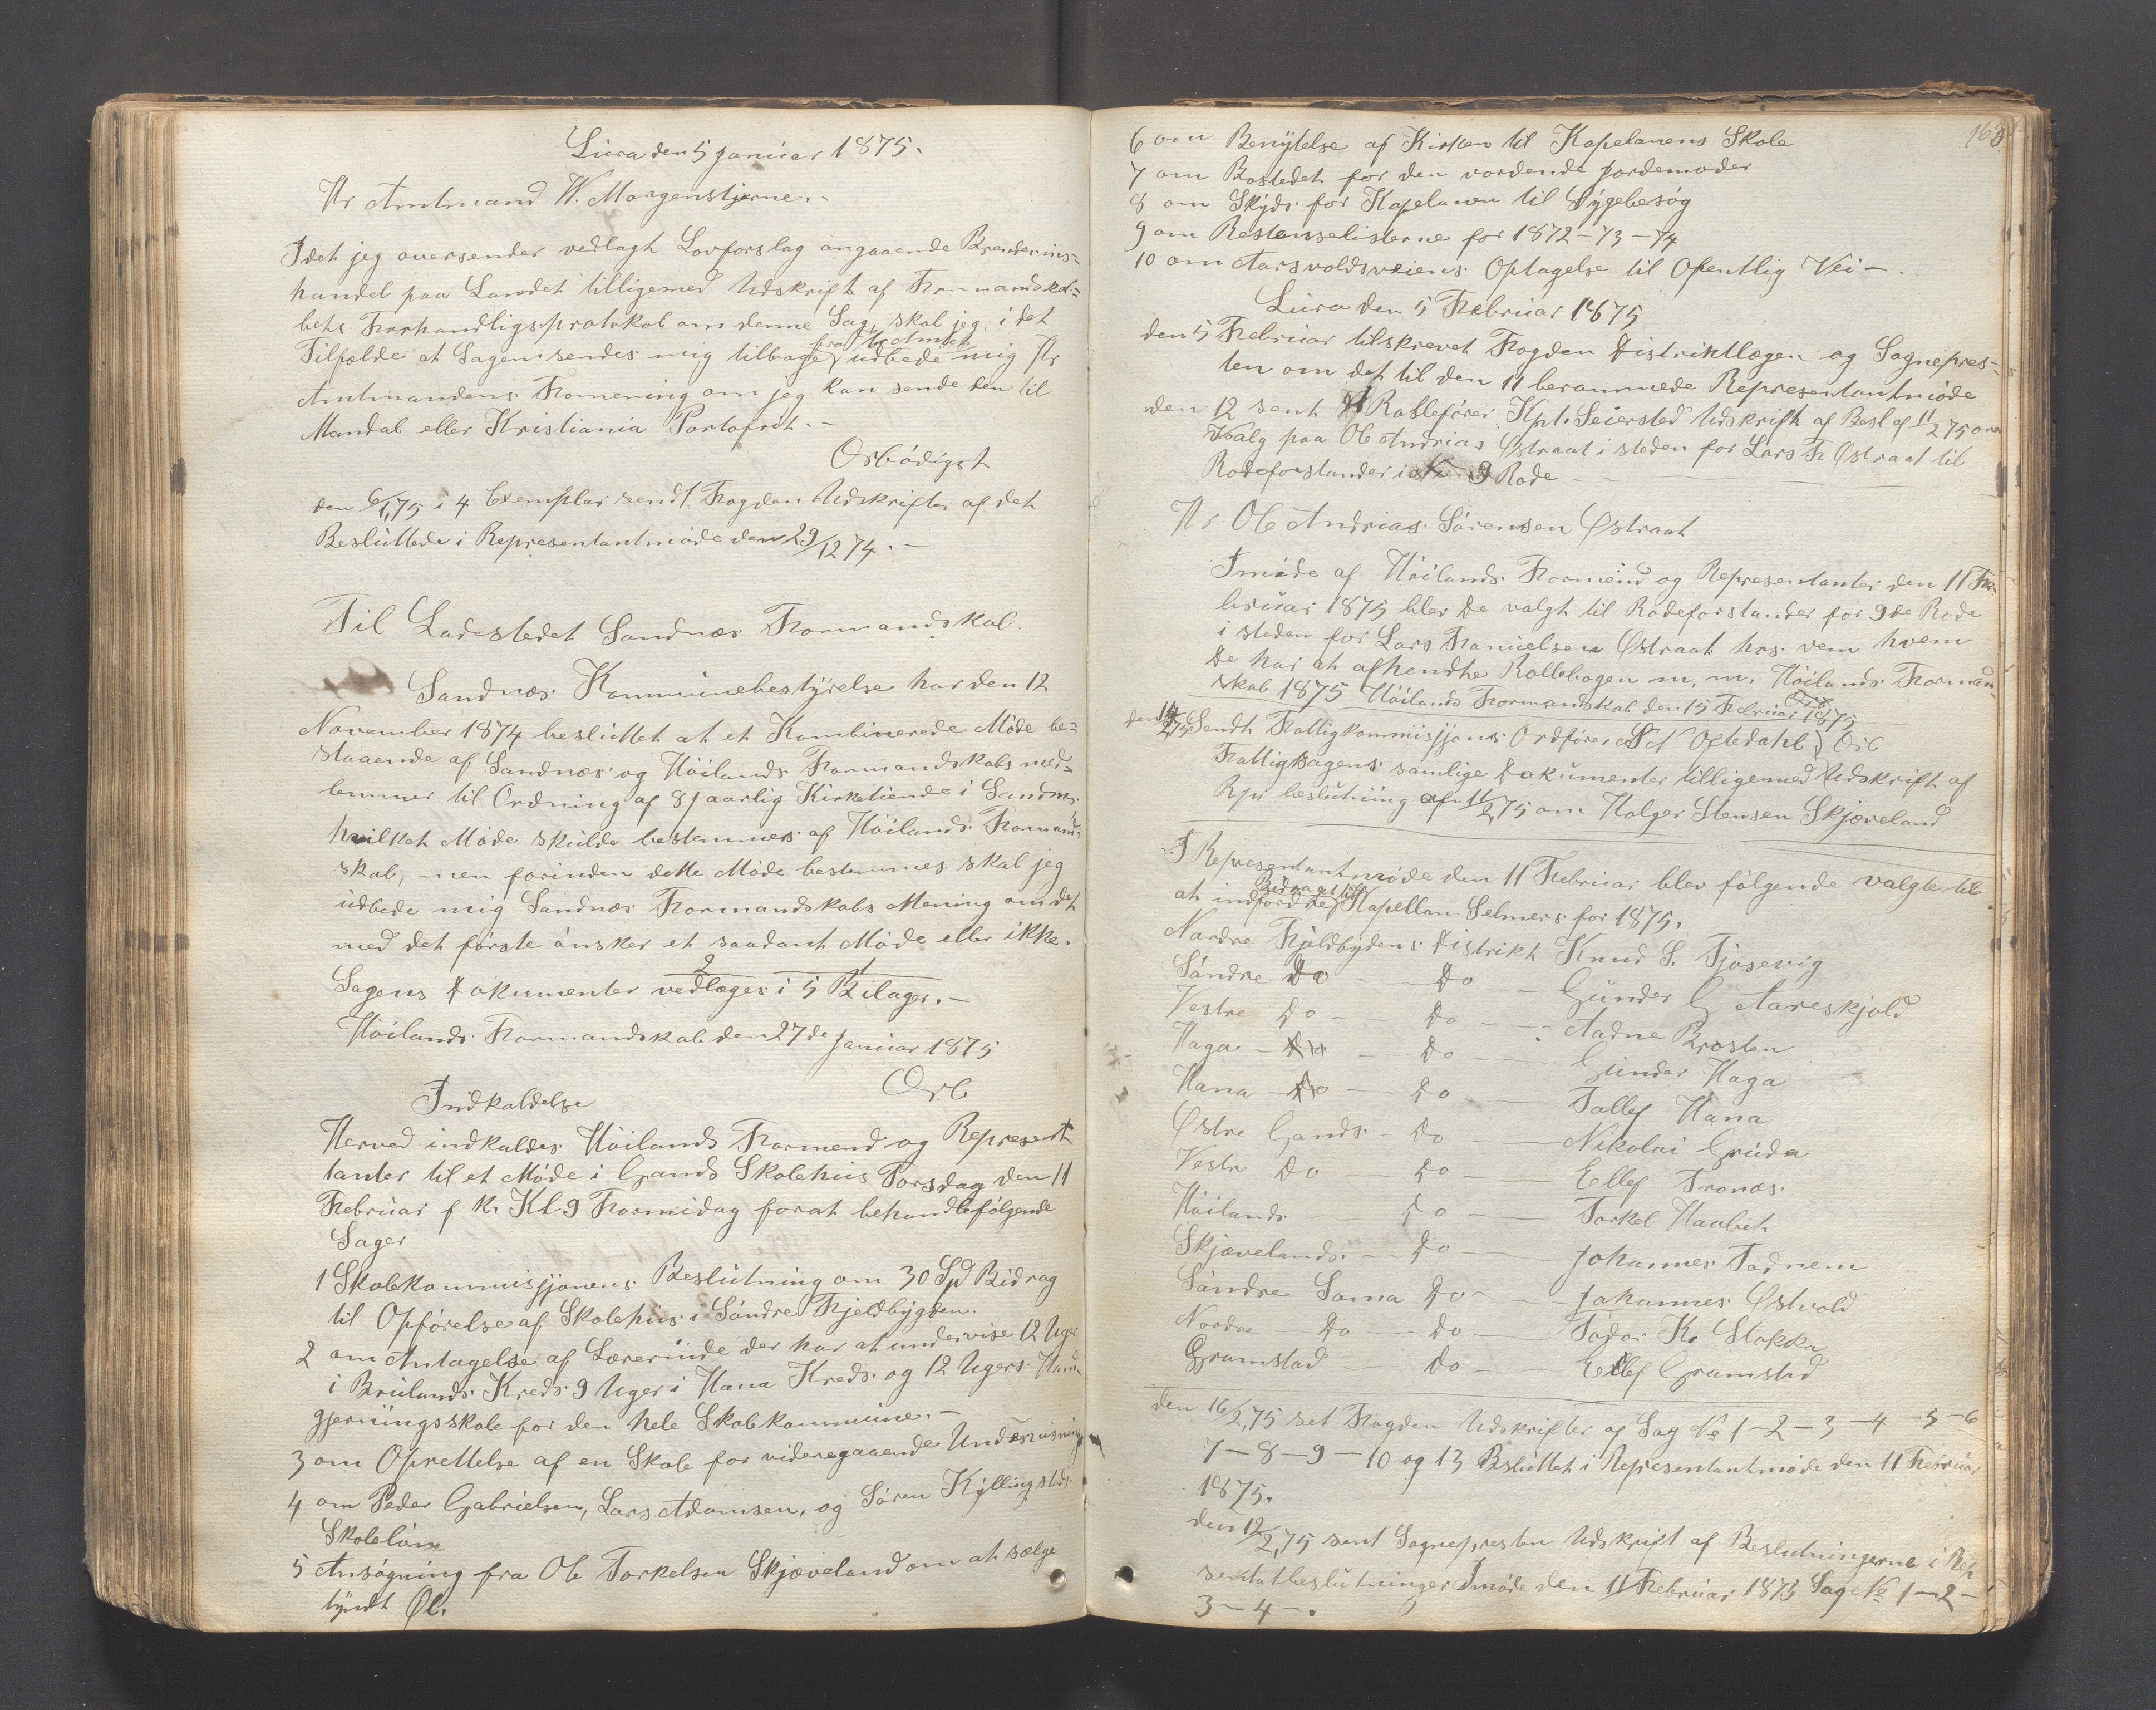 Lura den 5 Januar 1875.
Hr Amtmand W. Morgenstjerne.
Idet jeg oversender vedlagt Lovforslag angaaende Brendevins=
handel paa Landet tilligemed Udskrift af Formandska=
bets Forhandligsprotokol om denne Sag, skal jeg, i det
Tilfælde at Sagen sendes mig tilbage fra Hr Amtet udbede mig Hr
Amtmandens Formening om jeg kan sende den til
Mandal eller Kristiania Portofrit. -
Ærbödigst
den 6/1 75 i 4 Exemplar sendt Fogden Udskrifter af det
Besluttede i Representantmöde den 29/12 74. -
Til Ladestedet Sandnæs Formandskab.
Sandnæs Kommunebestyrelse har den 12
November 1874 besluttet at et Kombinerede Möde be=
staaende af Sandnæs og Höilands Formandskabs med=
lemmer til Ordning af 8 Jaarlig Kirketiende i Sandnæs
hvilket Möde skulde bestemmes af Höilands Formand=
skab, men forinden dette Möde bestemmes skal jeg
udbede mig Sandnæs Formandskabs Mening om det
med det förste önsker et saadant Möde eller ikke.
Sagens Dokumenter vedlæges i 5 Bilager. -
Höilands Formandskab den 27de Januar 1875
Ærb
Indkaldelse
Herved indkaldes Höilands Formend og Represent
tanter til et Möde i Gands Skolehus Torsdag den 11
Februar f k. Kl 9 Formidag forat behandle fölgende
Sager
1 Skolekommissjonens Beslutning om 30 Spd Bidrag
til Opförelse af Skolehus i Söndre Fjeldbygden.
2 om Antagelse af Lærerinde der har at undervise 12 Uger
i Brulands Kreds 9 Uger i Hana Kreds og 12 Ugers Hand
gjerningsskole for den hele Skolekommune. -
3 om Oprettelse af en Skole for videregaaende Undervisning
4 om Peder Gabrielsen, Lars Adamsen, og Sören Kyllingstads
Skolelön
5 Ansögning fra Ole Torkelsen Skjæveland om at sælge
tyndt Öl.
163
6 om Benyttelse af Kirken til Kapelanens Skole
7 om Bostedet for den vordende Jordemoder
8 om Skyds for Kapelanen til Sygebesög
9 om Restanselisterne for 1872 - 73 - 74
10 om Aarsvoldsveiens Optagelse til Ofentlig Vei -
Lura den 5 Februar 1875
den 5 Februar tilskrevet Fogden Distriktlægen og Sognepres=
ten om det til den 11 berammede Representantmöde
den 12 sent Rollefører Kpt. Seiersted Udskrift af Besl af 11/2 75 om
Valg paa Ole Andrias Østraat i steden for Lars F Østraat til
Rodeforstander i 9 Rode
Hr Ole Andrias Sörensen Østraat
I möde af Höilands Formend og Representanter den 11 Fe=
bruar 1875 blev De valgt til Rodeforstander for 9de Rode
i steden for Lars Danielsen Østraat hos vem hvem
De har at afhendte Rollebogen m. m. Höilands Formand=
skab 1875 Höilands Formandskab den 15 Februar 1875
Sendt Fattigkommissjons Ordförer S A Oftedahl Ærb
Fattigsagens samlige Dokumenter tilligemed Udskrift af
Rpr beslutning af 11/2 75 om Holger Stensen Skjæveland
I Representantmöde den 11 Februar blev fölgende valgte til
at indfordre Bidraget til Kapellan Selmers for 1875.
Nordre Fjeldbydens Distrikt Knud S. Tjösevig
Söndre Do - Do - Gunder G Aareskjold
Vestre Do - Do - Aadne Brosten
Haga - Do - Do - Gunder Haga
Hana - Do - Do - Tollef Hana
Østre Gands Do - Nikolai Gruda
Vestr Do - Do - Ellef Tronæs
Höilands - Do - Torkel Haabet
Skjævelands - Do - Johannes Todnem
Söndre Soma Do - Johannes Østvold
Nordre - Do - Do - Todar K. Stokka
Gramstad - Do - Ellef Gramstad
den 16/2 75 set Fogden Udskrifter af Sag No 1 - 2 - 3 - 4 - 5 - 6
7 - 8 - 9 - 10 og 13 Besluttet i Representantmöde den 11 Februar
1875.
den 12/2 75 sent Sognepresten Udskrift af Beslutningerne i Rep
sentatbeslutninger I möde den 11 Februar 1875 Sag No 1 - 2 -
3 - 4 -.